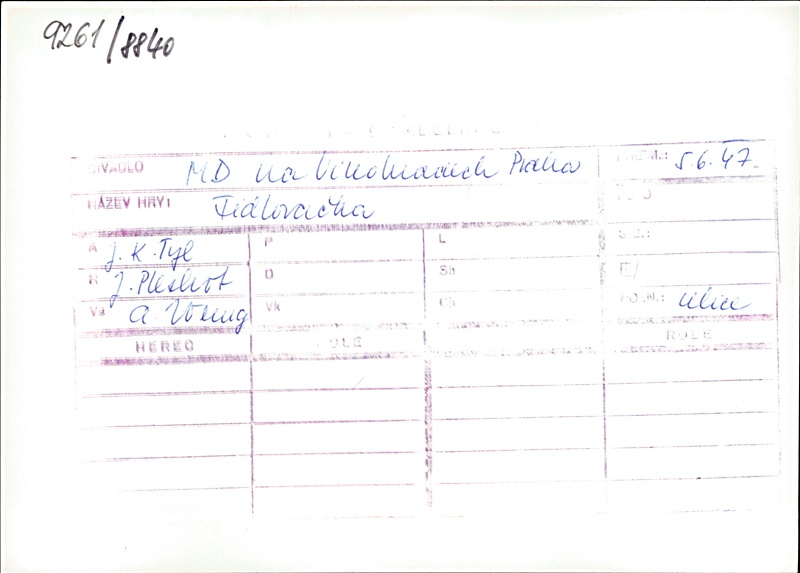 9261/8840
DIVADLO MD na Vinohradech Praha PREM.: 5.6.47.
NÁZEV HRY: Fidlovačka
A J. K. Tyl P L
R J. Pleskot D Sh E/
Vs A. Wenig Vk Ch ulice
HEREC ROLE ROLE